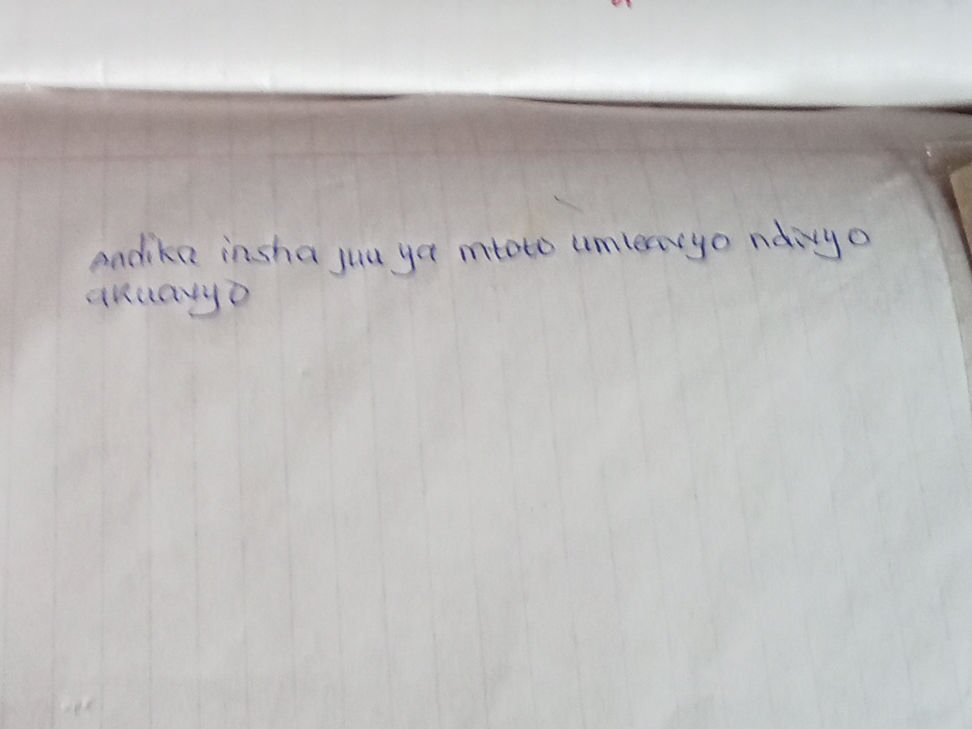 Andika insha juu ya mtoto umleavyo ndivyo
akuavyo